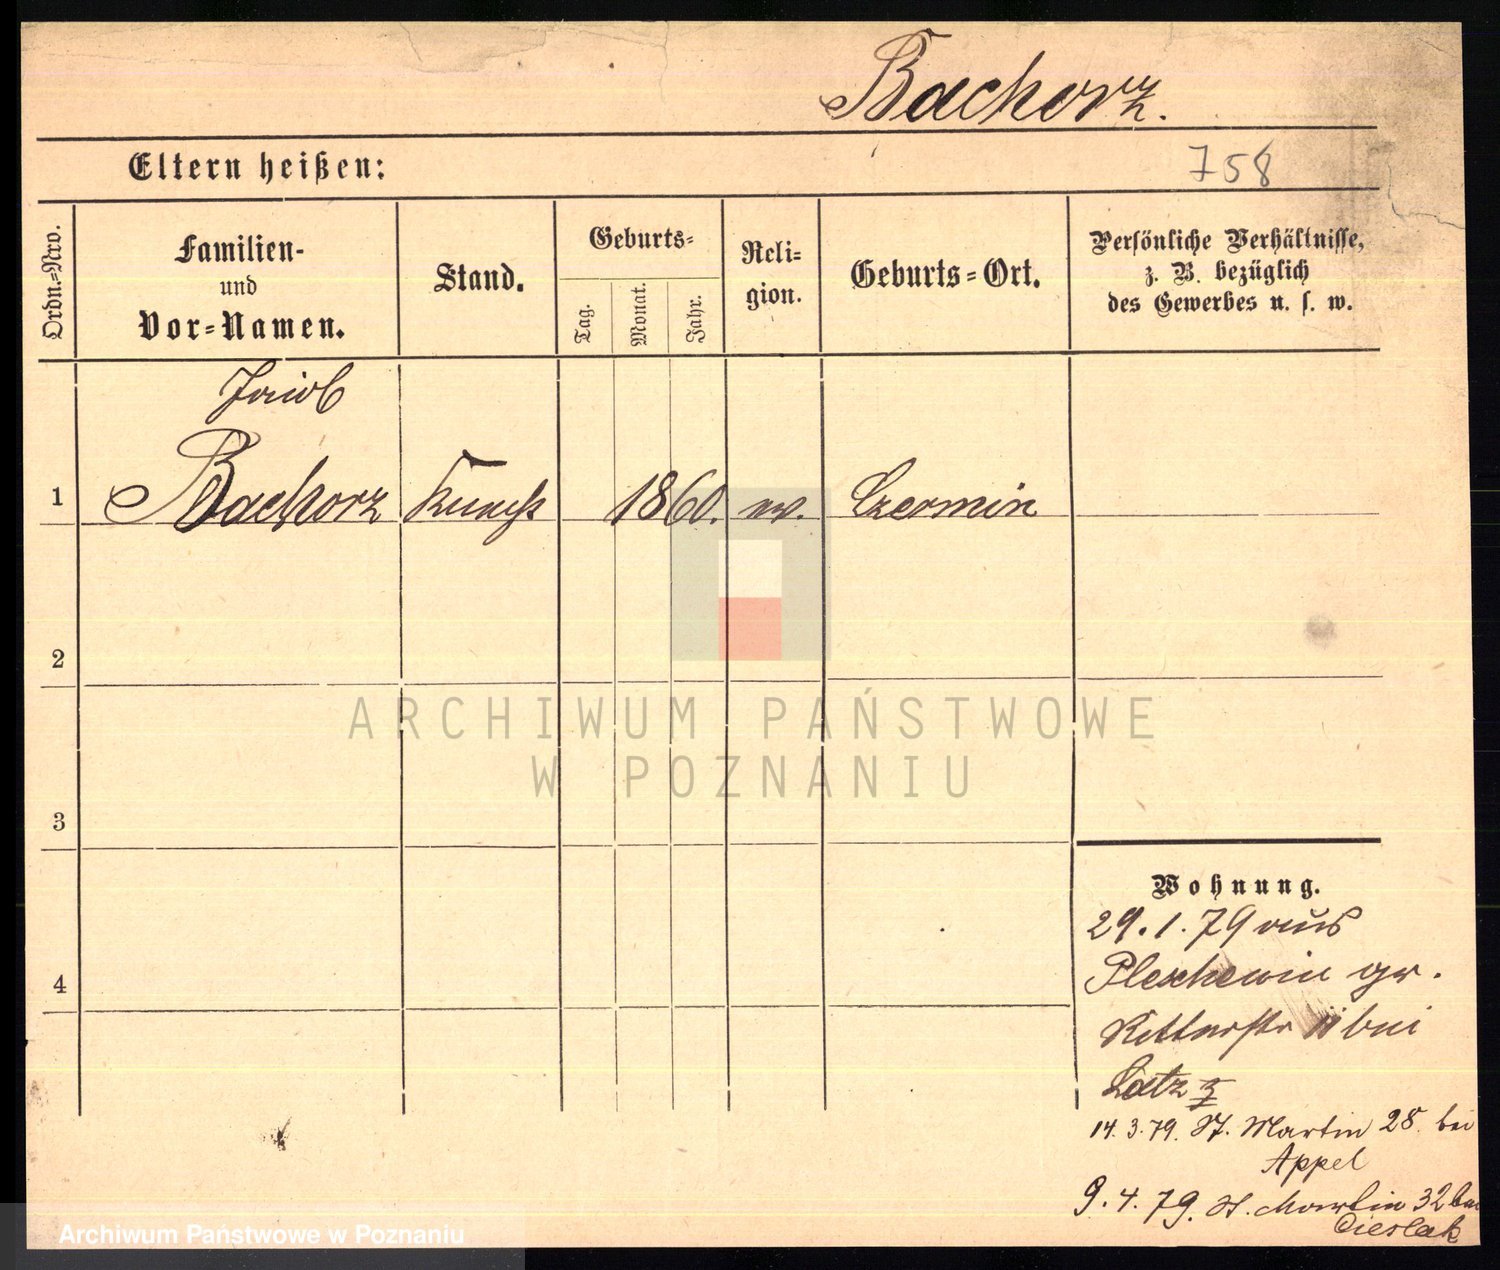 Bachorz.
Eltern heißen:
758
Ordn.-Nro.
Familien-
und
Vor-Namen.
Stand.
Geburts-
Tag.
Monat.
Jahr.
Reli-
gion.
Geburts-Ort.
Persönliche Verhältnisse,
z. B. bezüglich
des Gewerbes u. s. w.
Jacob
1 Bachorz Knecht 1860. Czermin
2
ARCHIWUM PAŃSTWOWE
W POZNANIU
3
4
Wohnung.
29.1.79 aus
gr.
Ritterstr 11 bei
Latz
14.3.79. St. Martin 28 bei
Appel
9.4.79. St. Martin 32 bei
Cieslak
Archiwum Państwowe w Poznaniu